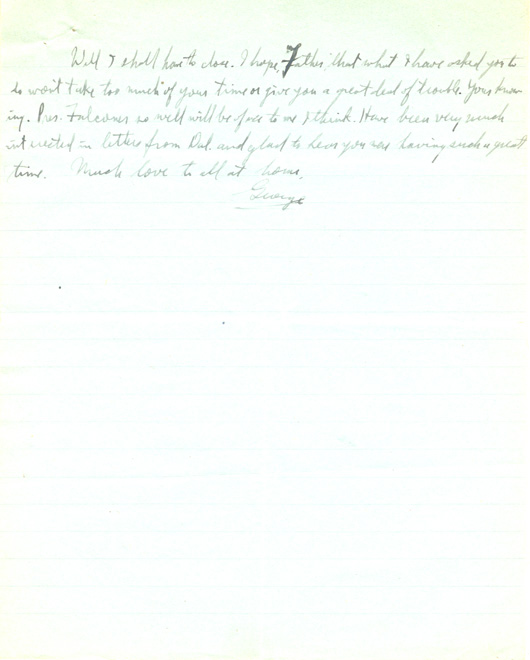 Well I shall have to close. I hope, Father, that what I have asked you to
do won't take too much of your time or give you a great deal of trouble. Your know-
ing. Pres. Falconer so well will be of use to me I think. Have been very much
interested in letters from Dal. and glad to hear you were having such a great
time. Much love to all at home.
George